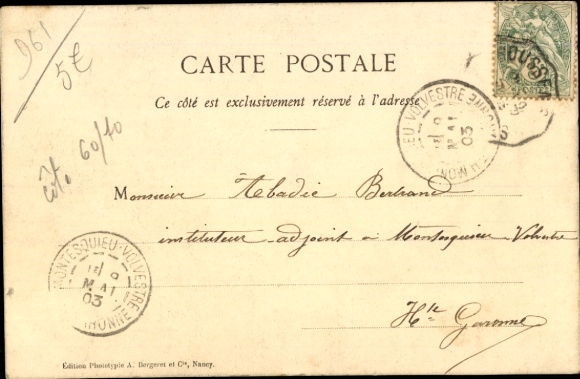 961
5€
côte 60/70
CARTE POSTALE
Ce côté est exclusivement réservé à l'adresse
MONTESQUIEU-VOLVESTRE
MAI
03
Monsieur Abadie Bertrand
instituteur adjoint à Montesquieu-Volvestre
Hte Garonne
MONTESQUIEU-VOLVESTRE
MAI
03
Édition Phototypie A. Bergeret et Cie, Nancy.